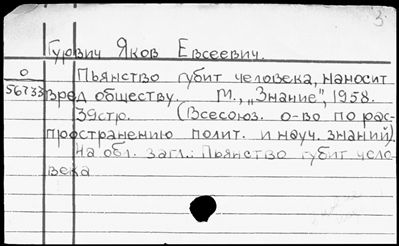 3
Гурвич Яков Евсеевич.
О
56733
Пьянство губит человека, наносит
вред обществу. М., „Знание", 1958.
39стр. (Всесоюз. о-во по рас-
пространению полит. и науч. знаний).
На обл. загл.: Пьянство губит чело-
века